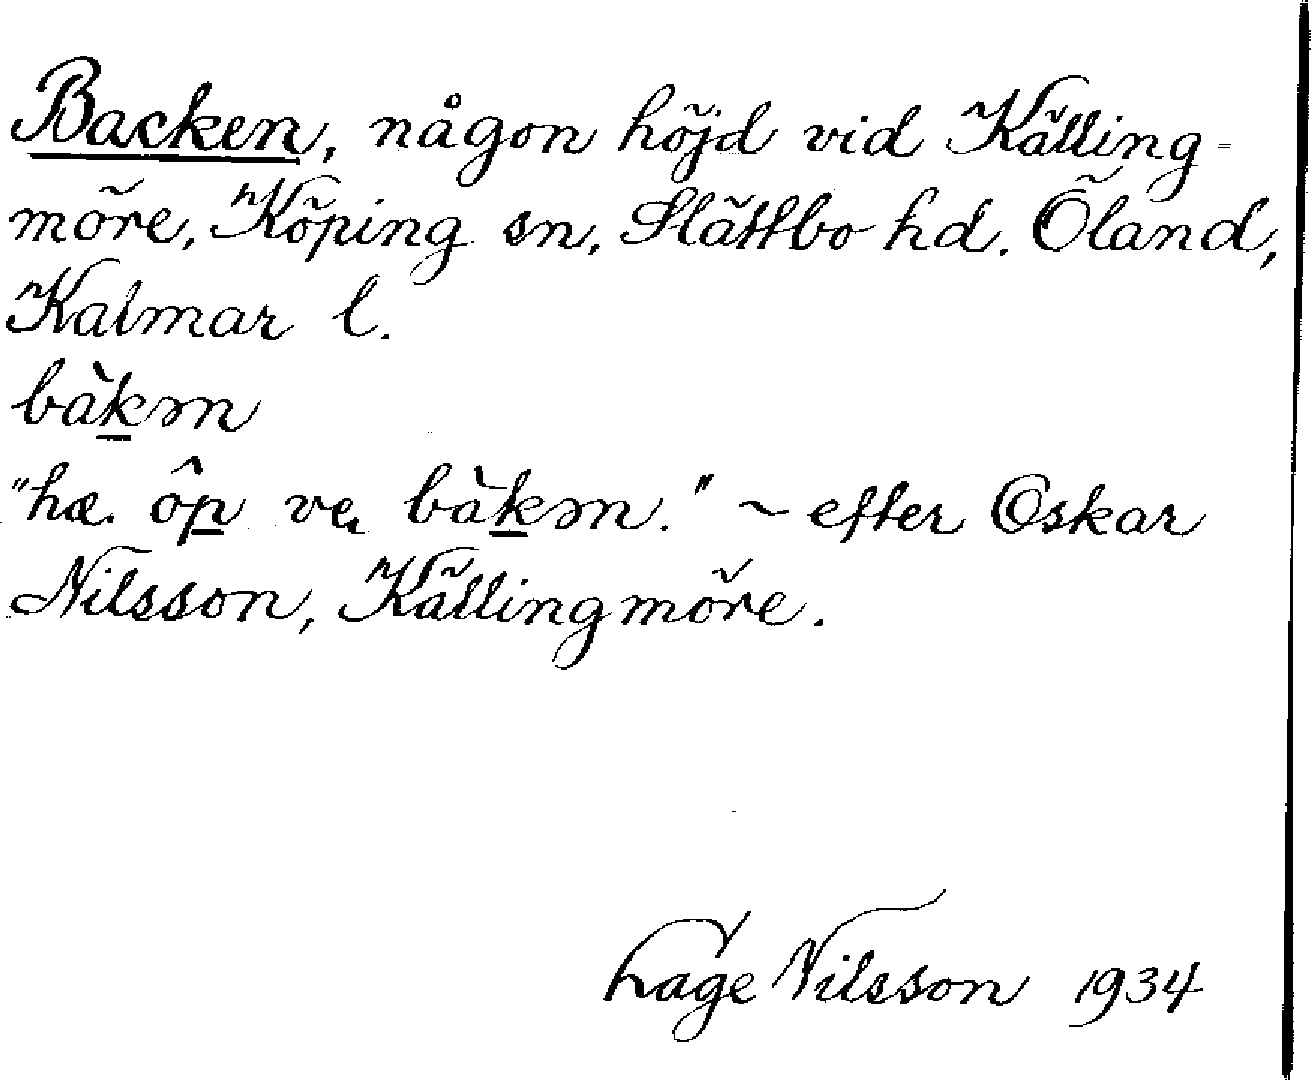 Backen, någon höjd vid Källing-
möre, Köping sn, Slättbo hd. Öland,
Kalmar l.
bàkən
"hæ. ôp ve bàkən." ~ efter Oskar
Nilsson, Källingmöre.
Lage Nilsson 1934